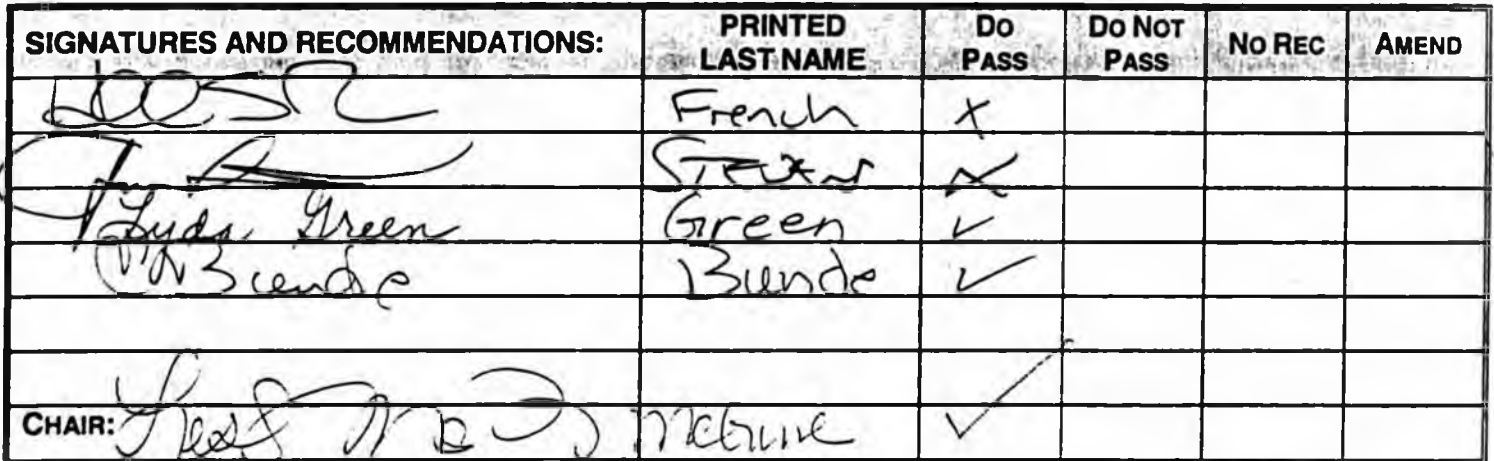 SIGNATURES AND RECOMMENDATIONS: PRINTED LAST NAME DO PASS DO NOT PASS NO REC AMEND
French X
X
Lyda Green Green ✓
Bunde Bunde ✓
CHAIR: McGuire ✓